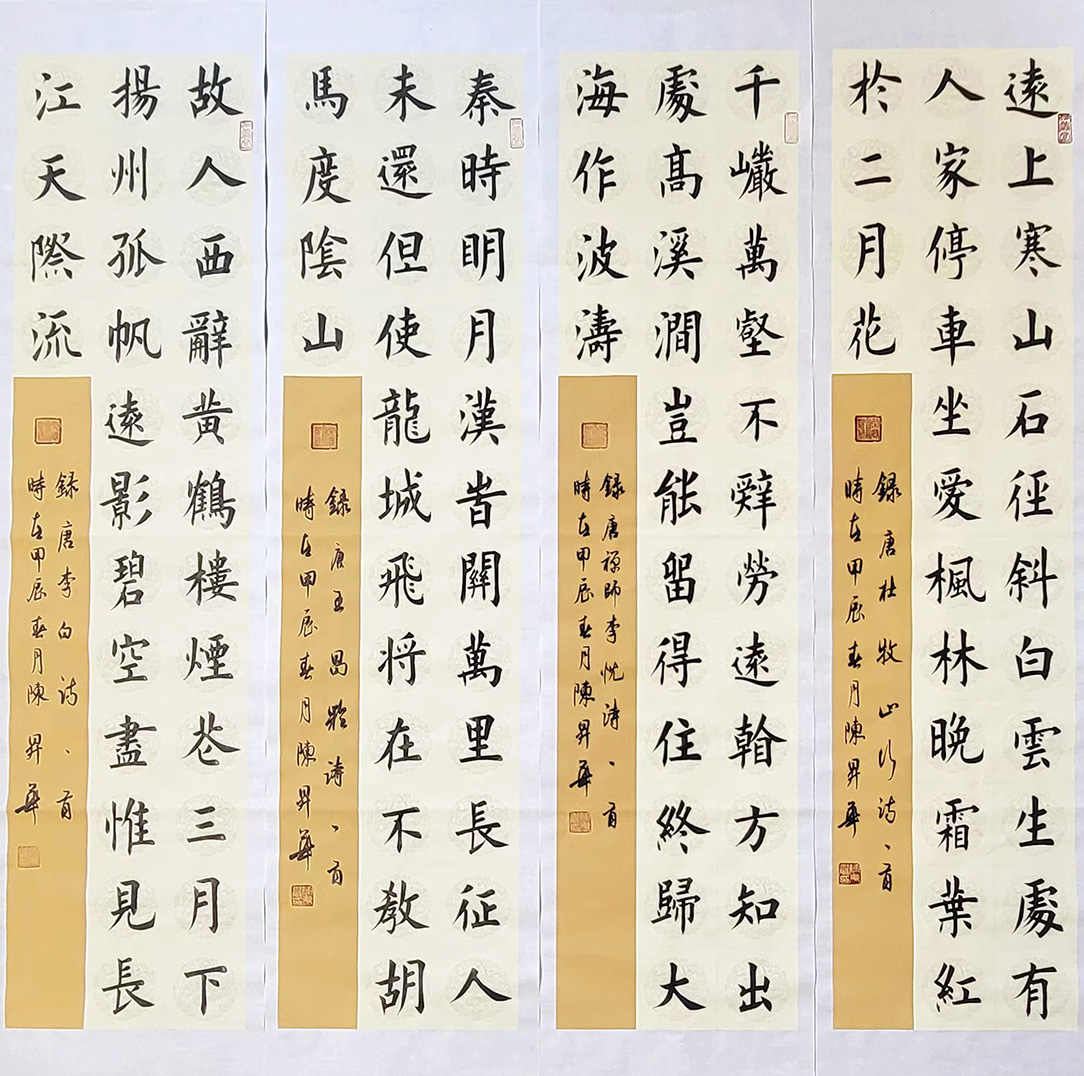 遠上寒山石徑斜白雲生處有
人家停車坐愛楓林晚霜葉紅
於二月花
錄唐杜牧山行詩一首
時在甲辰春月陳昇華
千巖萬壑不辭勞遠看方知出
處高溪澗豈能留得住終歸大
海作波濤
錄唐禪師李忱詩一首
時在甲辰春月陳昇華
秦時明月漢時關萬里長征人
未還但使龍城飛將在不教胡
馬度陰山
錄唐王昌齡詩一首
時在甲辰春月陳昇華
故人西辭黃鶴樓煙花三月下
揚州孤帆遠影碧空盡惟見長
江天際流
錄唐李白詩一首
時在甲辰春月陳昇華